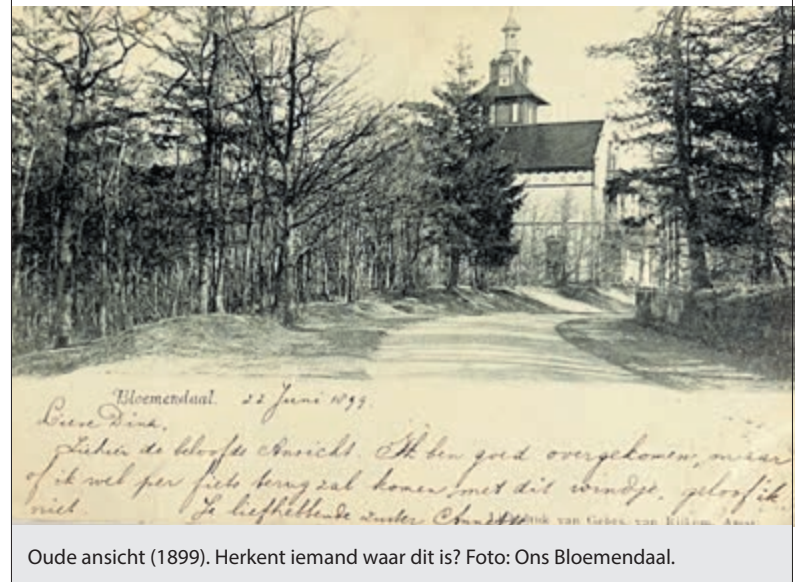 Bloemendaal. 22 Juni 1899.
Lieve Dina,
Ziehier de beloofde Ansicht. Ik ben goed overgekomen, maar
of ik wel per fiets terug zal komen met dit windje, geloof ik
niet. Je liefhebbende zuster
druk van Gebrs. van Rijkom, Amst.
Oude ansicht (1899). Herkent iemand waar dit is? Foto: Ons Bloemendaal.